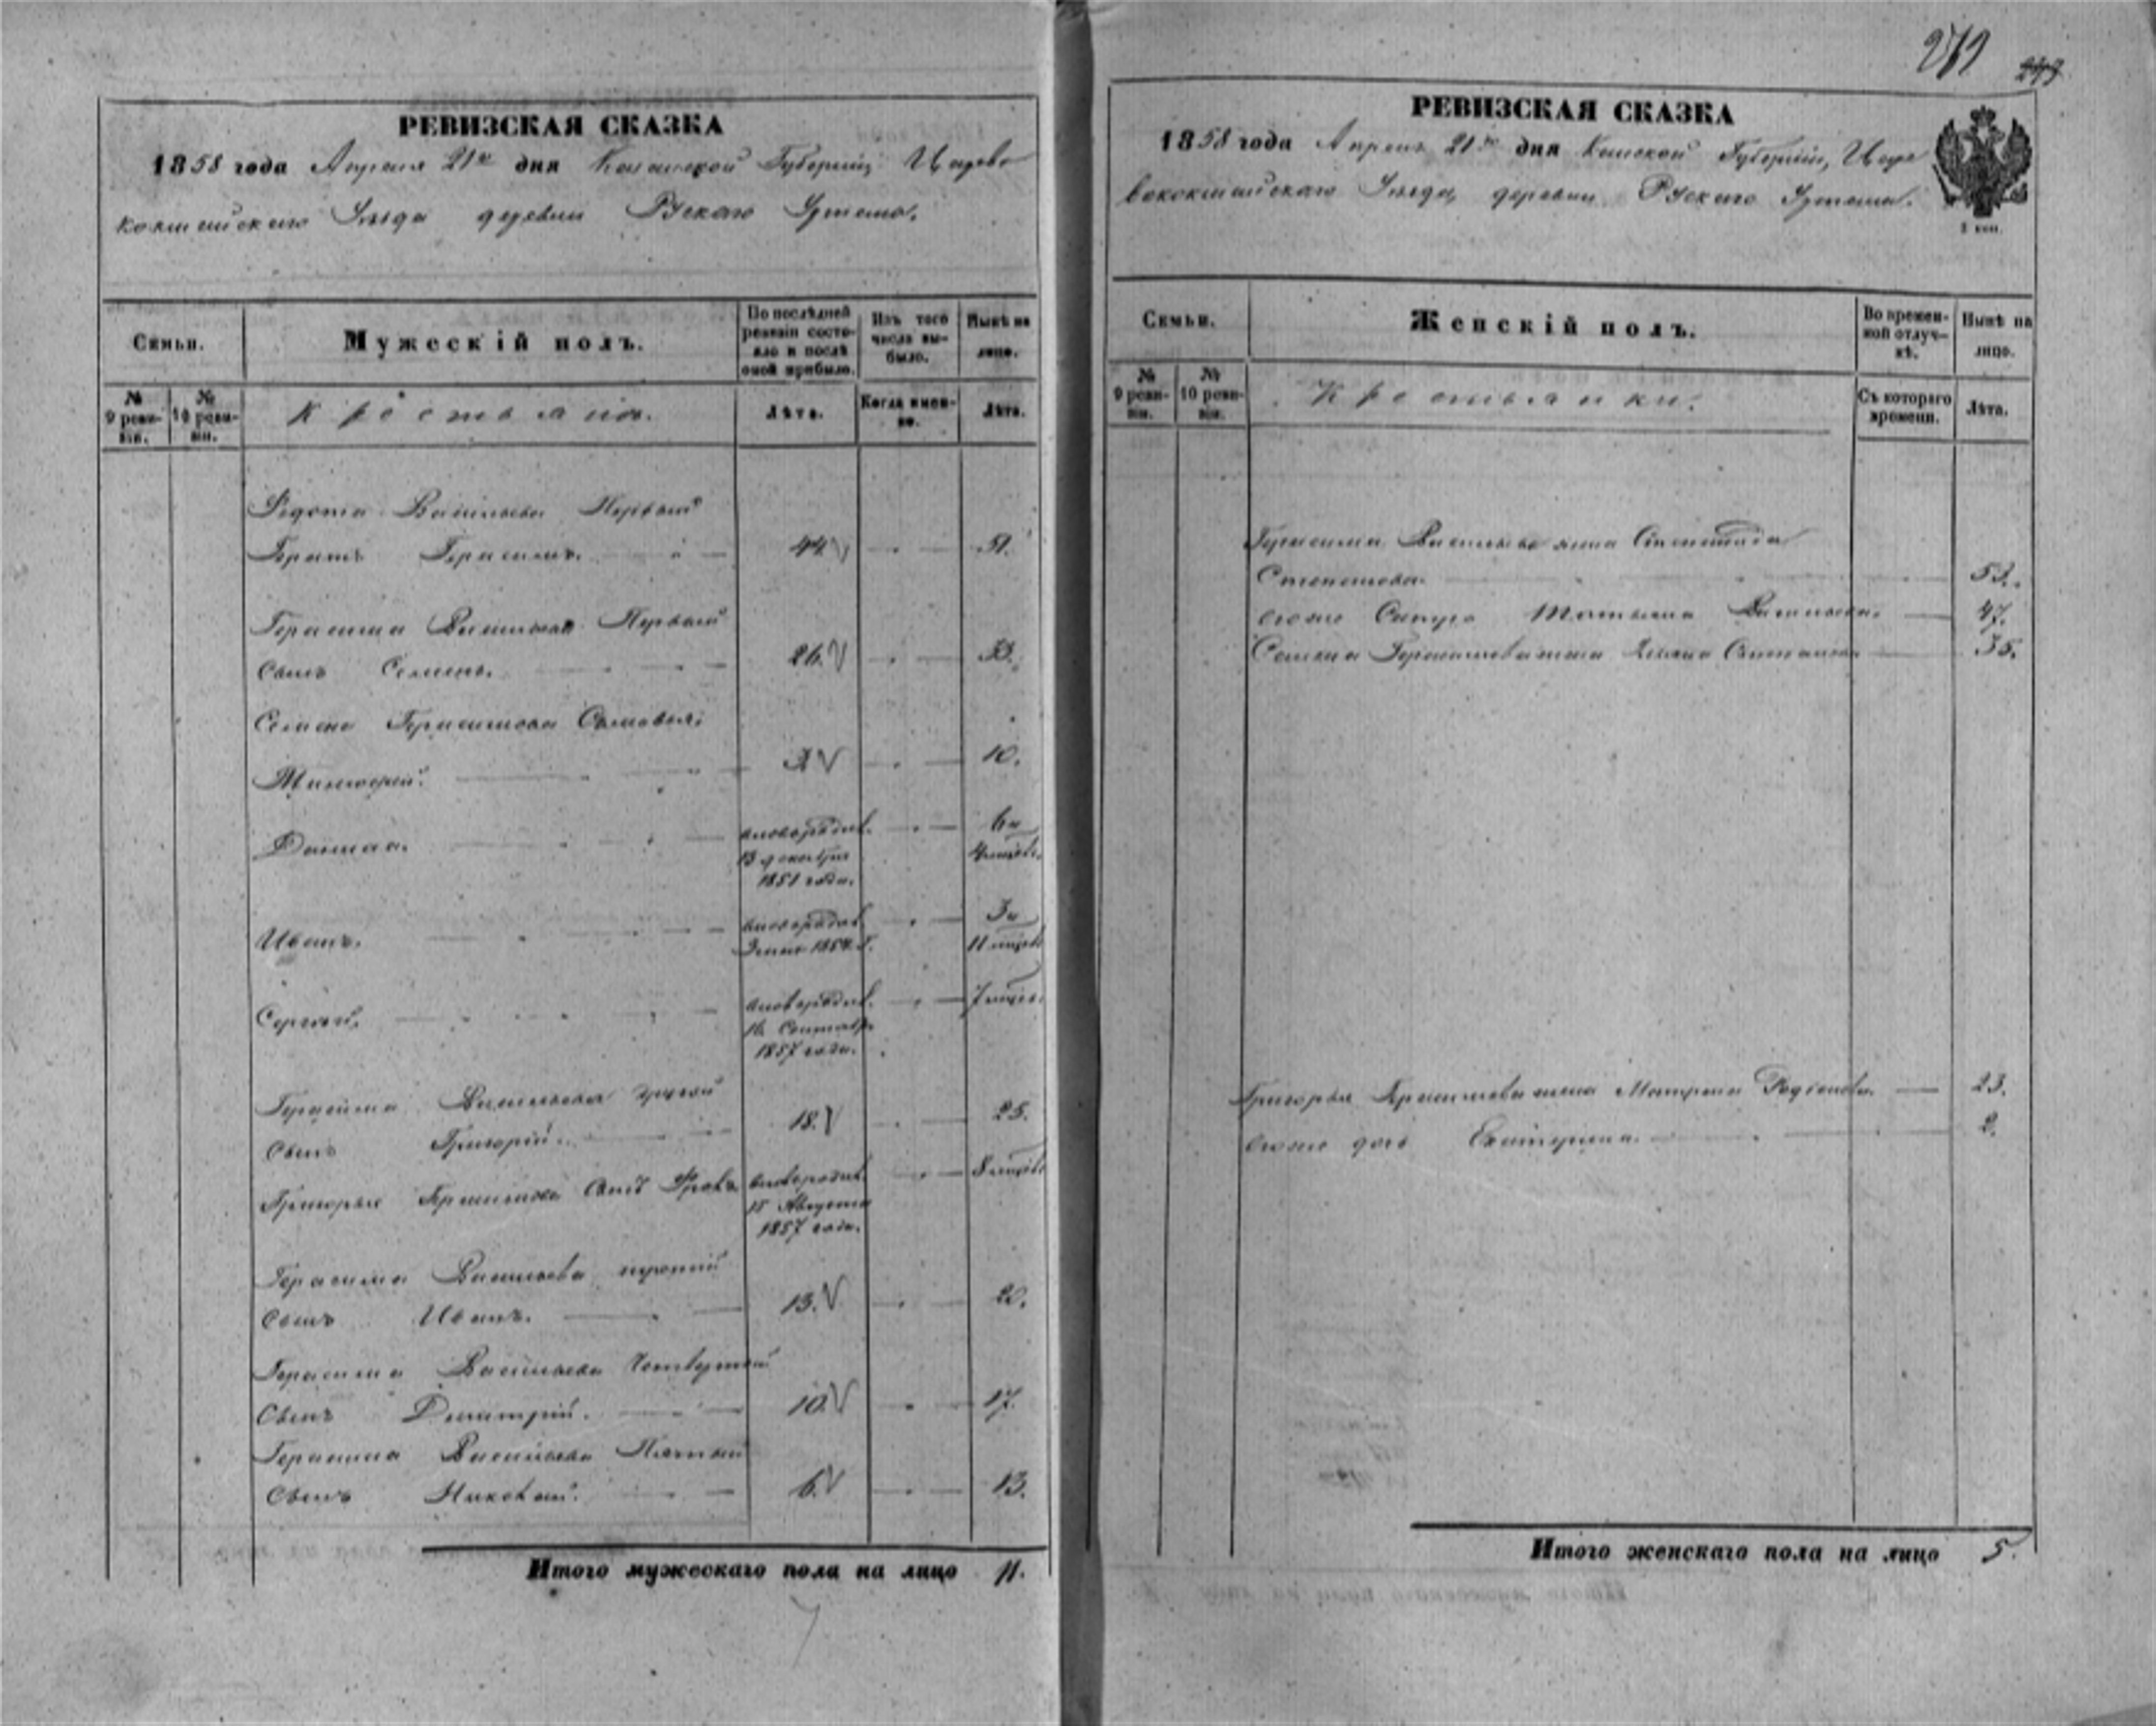 271
243
РЕВИЗСКАЯ СКАЗКА
1858 года Апреля 21го дня Казанской Губерніи Царево
кокшайскаго Уѣзда деревни Рускаго Уртема.
Семьи.
Мужескій полъ.
По послѣдней ревизіи состояло и послѣ оной прибыло.
Изъ того числа выбыло.
Нынѣ на лицо.
№ 9 ревизіи.
№ 10 ревизіи.
Крестьяна.
Лѣта.
Когда именно.
Лѣта.
Федота Васильева Первый
Братъ Герасимъ. 44. 51.
Герасима Васильева Первый
Сынъ Семенъ. 26. 33.
Семена Герасимова Сыновья:
3 10.
Данила. новорожд. 6 и
13 декабря 4 месяцов.
1851 года.
Иванъ. новорожд. 3 и
1854 г. 11 месяцов
Сергей. новорожд. 7 месяцов.
16 Сентябр.
1857 года.
Герасима Васильева другой
Сынъ Григорій. 18. 25.
Григорья Герасимова Сынъ Фролъ новорожд. 8 месяцов
15 Августа
1857 года.
Герасима Васильева третій
Сынъ Иванъ. 13. 20.
Герасима Васильева Четвертой
Сынъ Дмитрій. 10. 17.
Герасима Васильева Пятый
Сынъ Николай. 6. 13.
Итого мужескаго пола на лицо 11.
РЕВИЗСКАЯ СКАЗКА
1858 года Апреля 21го дня Казанской Губерніи, Царе
вококшайскаго Уѣзда, деревни Рускаго Уртема.
2 коп.
Семьи.
Женскій полъ.
Во временной отлучкѣ.
Нынѣ на лицо.
№ 9 ревизіи.
№ 10 ревизіи.
Крестьянки.
Съ котораго времени.
Лѣта.
Герасима Васильева жена
Степанова. 53.
Татьяна Васильева. 47.
Семена Герасимова жена 35.
Григорья Герасимова жена Матрена Родіонова. 23.
дочь Екатерина. 2.
Итого женскаго пола на лицо 5.